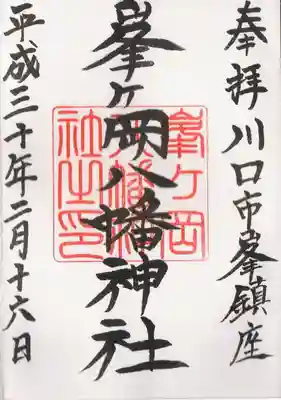 奉拝川口市峯鎮座
峯ヶ岡八幡神社
峯ヶ岡
八幡神
社之印
平成三十年二月十六日